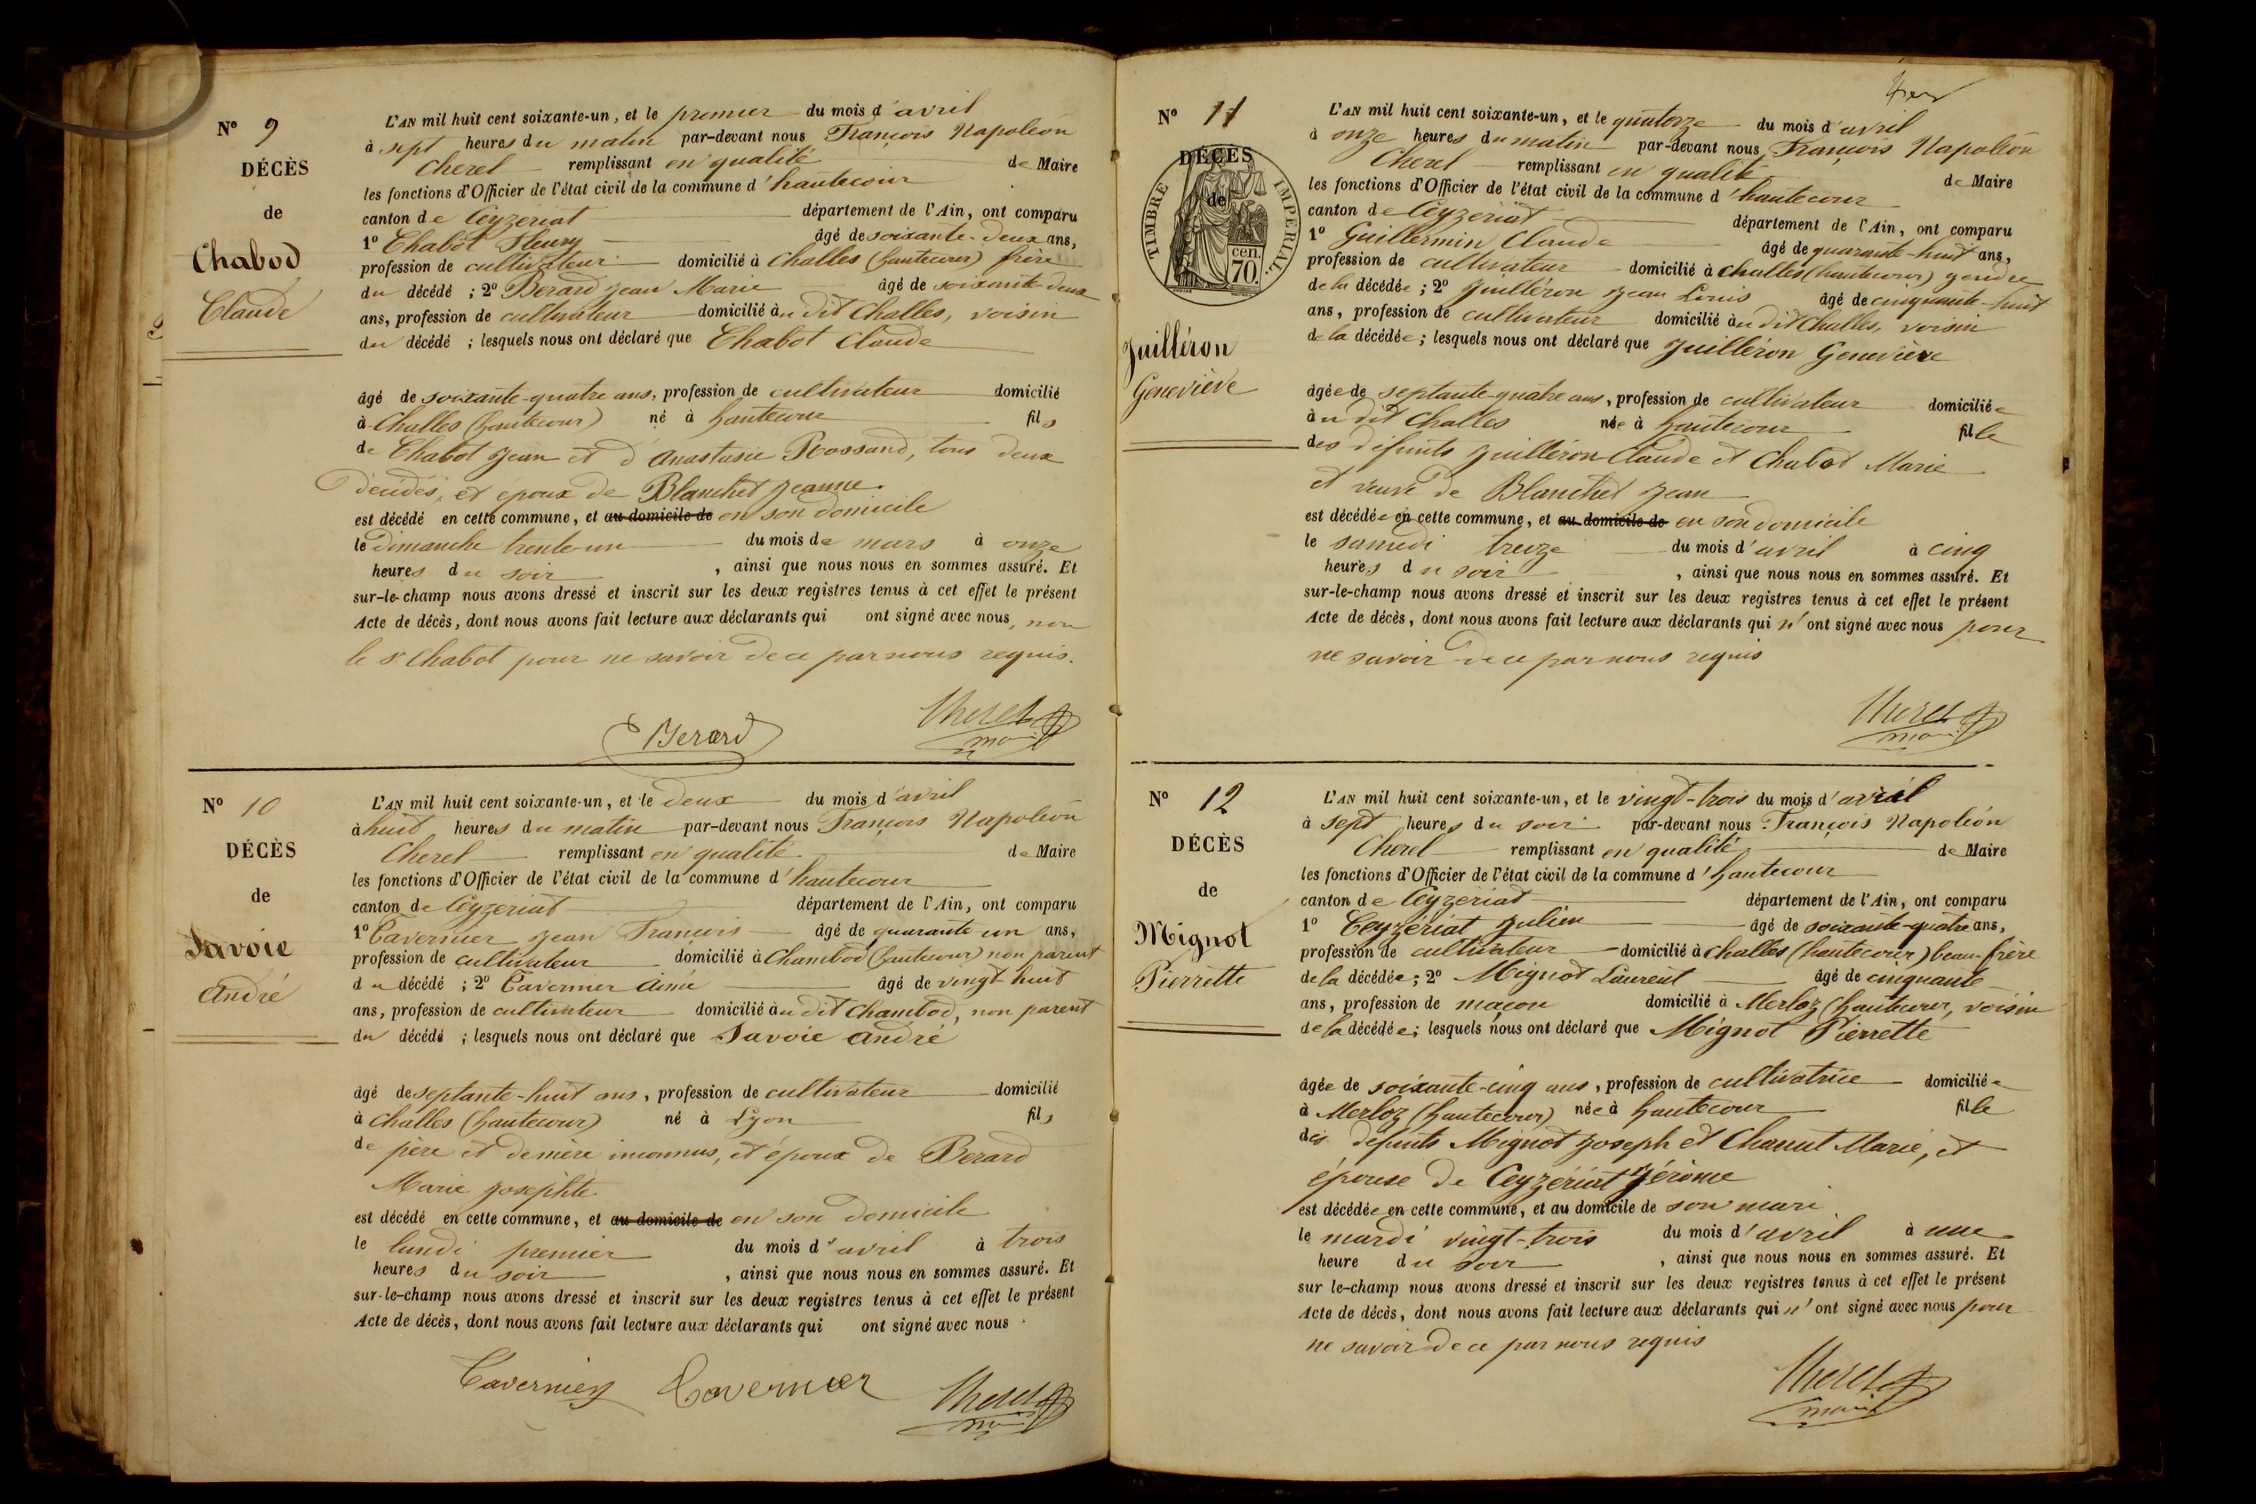 Nº 9
DÉCÈS
de
Chabod
Claude
L'AN mil huit cent soixante-un, et le premier du mois d'avril
à sept heures du matin par-devant nous François Napoléon
Cherel remplissant en qualité de Maire
les fonctions d'Officier de l'état civil de la commune d'hautecour
canton de Ceyzeriat département de l'Ain, ont comparu
1º Chabot Fleury âgé de soixante-deux ans,
profession de cultivateur domicilié à Challes (hautecour) frère
du décédé ; 2º Berard Jean Marie âgé de soixante-deux
ans, profession de cultivateur domicilié au dit Challes, voisin
du décédé ; lesquels nous ont déclaré que Chabot Claude
âgé de soixante-quatre ans, profession de cultivateur domicilié
à Challes (hautecour) né à hautecour fils
de Chabot Jean et d'Anastasie Rossand, tous deux
décédés, et époux de Blanchet Jeanne
est décédé en cette commune, et au domicile de en son domicile
le dimanche trente-un du mois de mars à onze
heures du soir , ainsi que nous nous en sommes assuré. Et
sur-le-champ nous avons dressé et inscrit sur les deux registres tenus à cet effet le présent
Acte de décès, dont nous avons fait lecture aux déclarants qui ont signé avec nous, non
le sr Chabot pour ne savoir de ce par nous requis.
Berard Cherel
maire
Nº 10
DÉCÈS
de
Savoie
André
L'AN mil huit cent soixante-un, et le deux du mois d'avril
à huit heures du matin par-devant nous François Napoléon
Cherel remplissant en qualité de Maire
les fonctions d'Officier de l'état civil de la commune d'hautecour
canton de Ceyzeriat département de l'Ain, ont comparu
1º Tavernier Jean François âgé de quarante un ans,
profession de cultivateur domicilié à Chambod (hautecour) non parent
du décédé ; 2º Tavernier Aimé âgé de vingt-huit
ans, profession de cultivateur domicilié au dit Chambod, non parent
du décédé ; lesquels nous ont déclaré que Savoie André
âgé de septante-huit ans, profession de cultivateur domicilié
à Challes (hautecour) né à Lyon fils
de père et de mère inconnus, et époux de Berard
Marie Josephte
est décédé en cette commune, et au domicile de en son domicile
le lundi premier du mois d'avril à trois
heures du soir , ainsi que nous nous en sommes assuré. Et
sur-le-champ nous avons dressé et inscrit sur les deux registres tenus à cet effet le présent
Acte de décès, dont nous avons fait lecture aux déclarants qui ont signé avec nous
Tavernier Tavernier Cherel
maire
Nº 11
DÉCÈS
de
TIMBRE IMPÉRIAL
cen.
70.
Juilléron
Geneviève
L'AN mil huit cent soixante-un, et le quatorze du mois d'avril
à onze heures du matin par-devant nous François Napoléon
Cherel remplissant en qualité de Maire
les fonctions d'Officier de l'état civil de la commune d'hautecour
canton de Ceyzeriat département de l'Ain, ont comparu
1º Guillermin Claude âgé de quarante-huit ans,
profession de cultivateur domicilié à Challes (hautecour) gendre
de la décédée ; 2º Juilléron Jean Louis âgé de cinquante-huit
ans, profession de cultivateur domicilié au dit Challes, voisin
de la décédée ; lesquels nous ont déclaré que Juilléron Geneviève
âgée de septante-quatre ans, profession de cultivateur domiciliée
au dit Challes née à hautecour fille
des défunts Juilléron Claude et Chabot Marie
et veuve de Blanchet Jean
est décédée en cette commune, et au domicile de en son domicile
le samedi treize du mois d'avril à cinq
heures du soir , ainsi que nous nous en sommes assuré. Et
sur-le-champ nous avons dressé et inscrit sur les deux registres tenus à cet effet le présent
Acte de décès, dont nous avons fait lecture aux déclarants qui n'ont signé avec nous pour
ne savoir de ce par nous requis
Cherel
maire
Nº 12
DÉCÈS
de
Mignot
Pierrette
L'AN mil huit cent soixante-un, et le vingt-trois du mois d'avril
à sept heures du soir par-devant nous François Napoléon
Cherel remplissant en qualité de Maire
les fonctions d'Officier de l'état civil de la commune d'hautecour
canton de Ceyzeriat département de l'Ain, ont comparu
1º Ceyzériat Julien âgé de soixante-quatre ans,
profession de cultivateur domicilié à Challes (hautecour) beau-frère
de la décédée ; 2º Mignot Laurent âgé de cinquante
ans, profession de maçon domicilié à Merloz (hautecour, voisin
de la décédée ; lesquels nous ont déclaré que Mignot Pierrette
âgée de soixante-cinq ans, profession de cultivatrice domiciliée
à Merloz (hautecour) née à hautecour fille
des défunts Mignot Joseph et Chanut Marie, et
épouse de Ceyzériat Jérôme
est décédée en cette commune, et au domicile de son mari
le mardi vingt-trois du mois d'avril à une
heure du soir , ainsi que nous nous en sommes assuré. Et
sur le-champ nous avons dressé et inscrit sur les deux registres tenus à cet effet le présent
Acte de décès, dont nous avons fait lecture aux déclarants qui n'ont signé avec nous pour
ne savoir de ce par nous requis
Cherel
maire